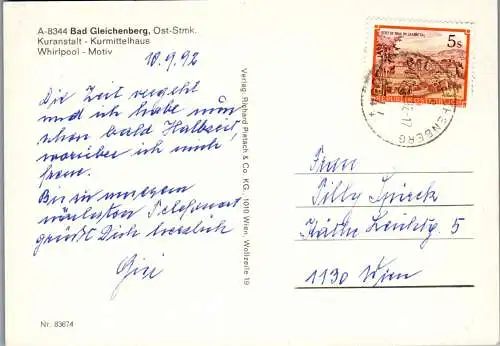 A-8344 Bad Gleichenberg, Ost-Stmk.
Kuranstalt - Kurmittelhaus
Whirlpool - Motiv
10.9.92
Die Zeit vergeht
und ich habe nun
schon bald Halbzeit,
worüber ich mich
freue.
Bis zu unserem
nächsten Telefonat
grüßt Dich herzlich
Gisi
Nr. 83674
Verlag: Richard Pietsch & Co. KG., 1010 Wien, Wollzeile 19
5 s
Frau
Tilly
5
1130 Wien